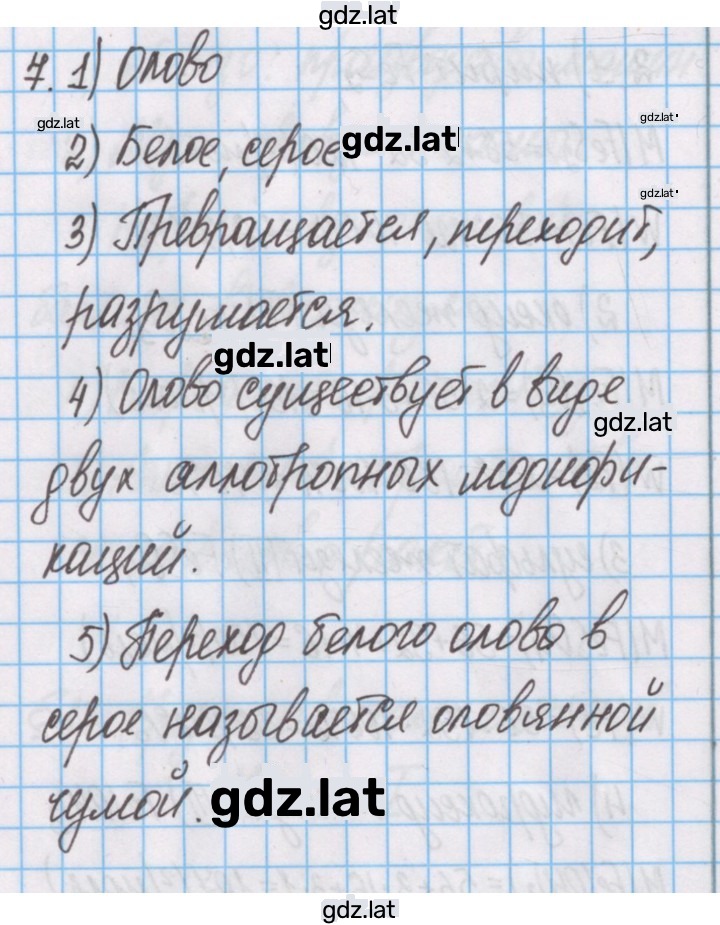 gdz.lat
7. 1) Олово
gdz.lat
2) Белое, серое gdz.lat
gdz.lat
gdz.lat
3) Превращается, переходит,
разрушается.
gdz.lat
4) Олово существует в виде
gdz.lat
двух аллотропных модифи-
каций.
5) Переход белого олова в
серое называется оловянной
чумой. gdz.lat
gdz.lat